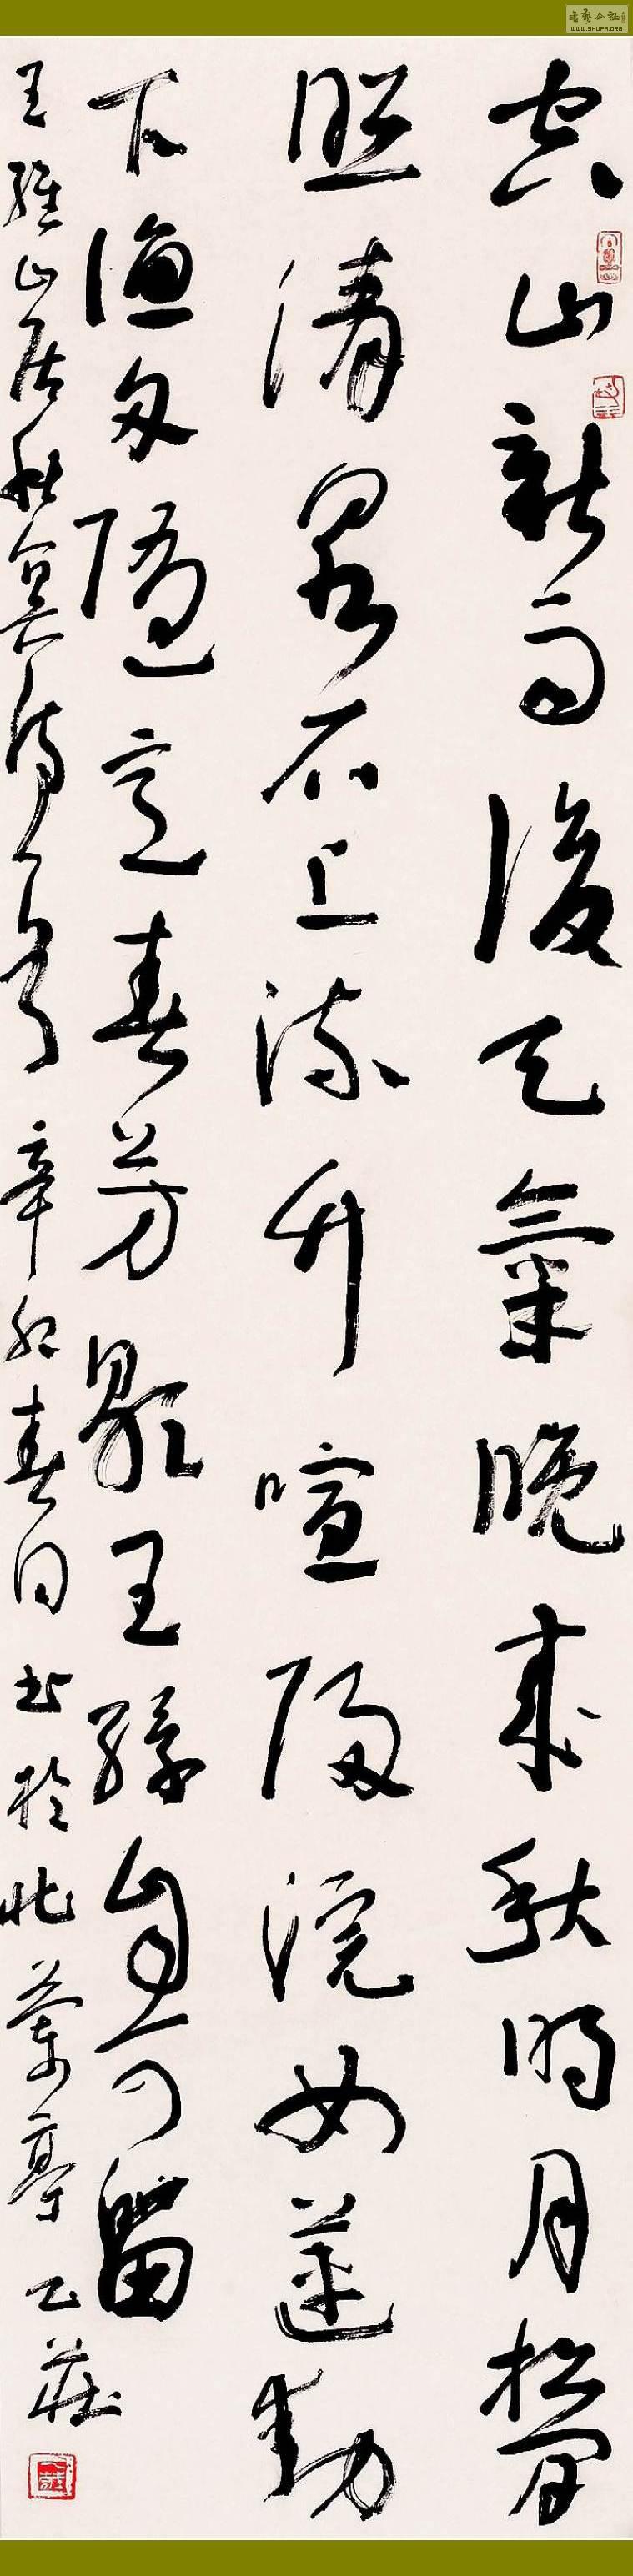 空山新雨後天氣晚來秋明月松間
照清泉石上流竹喧歸浣女蓮動
下漁舟隨意春芳歇王孫自可留
王維山居秋冥詩一首 辛卯春日書於北蘭亭乙莊
WWW.SHUFA.ORG